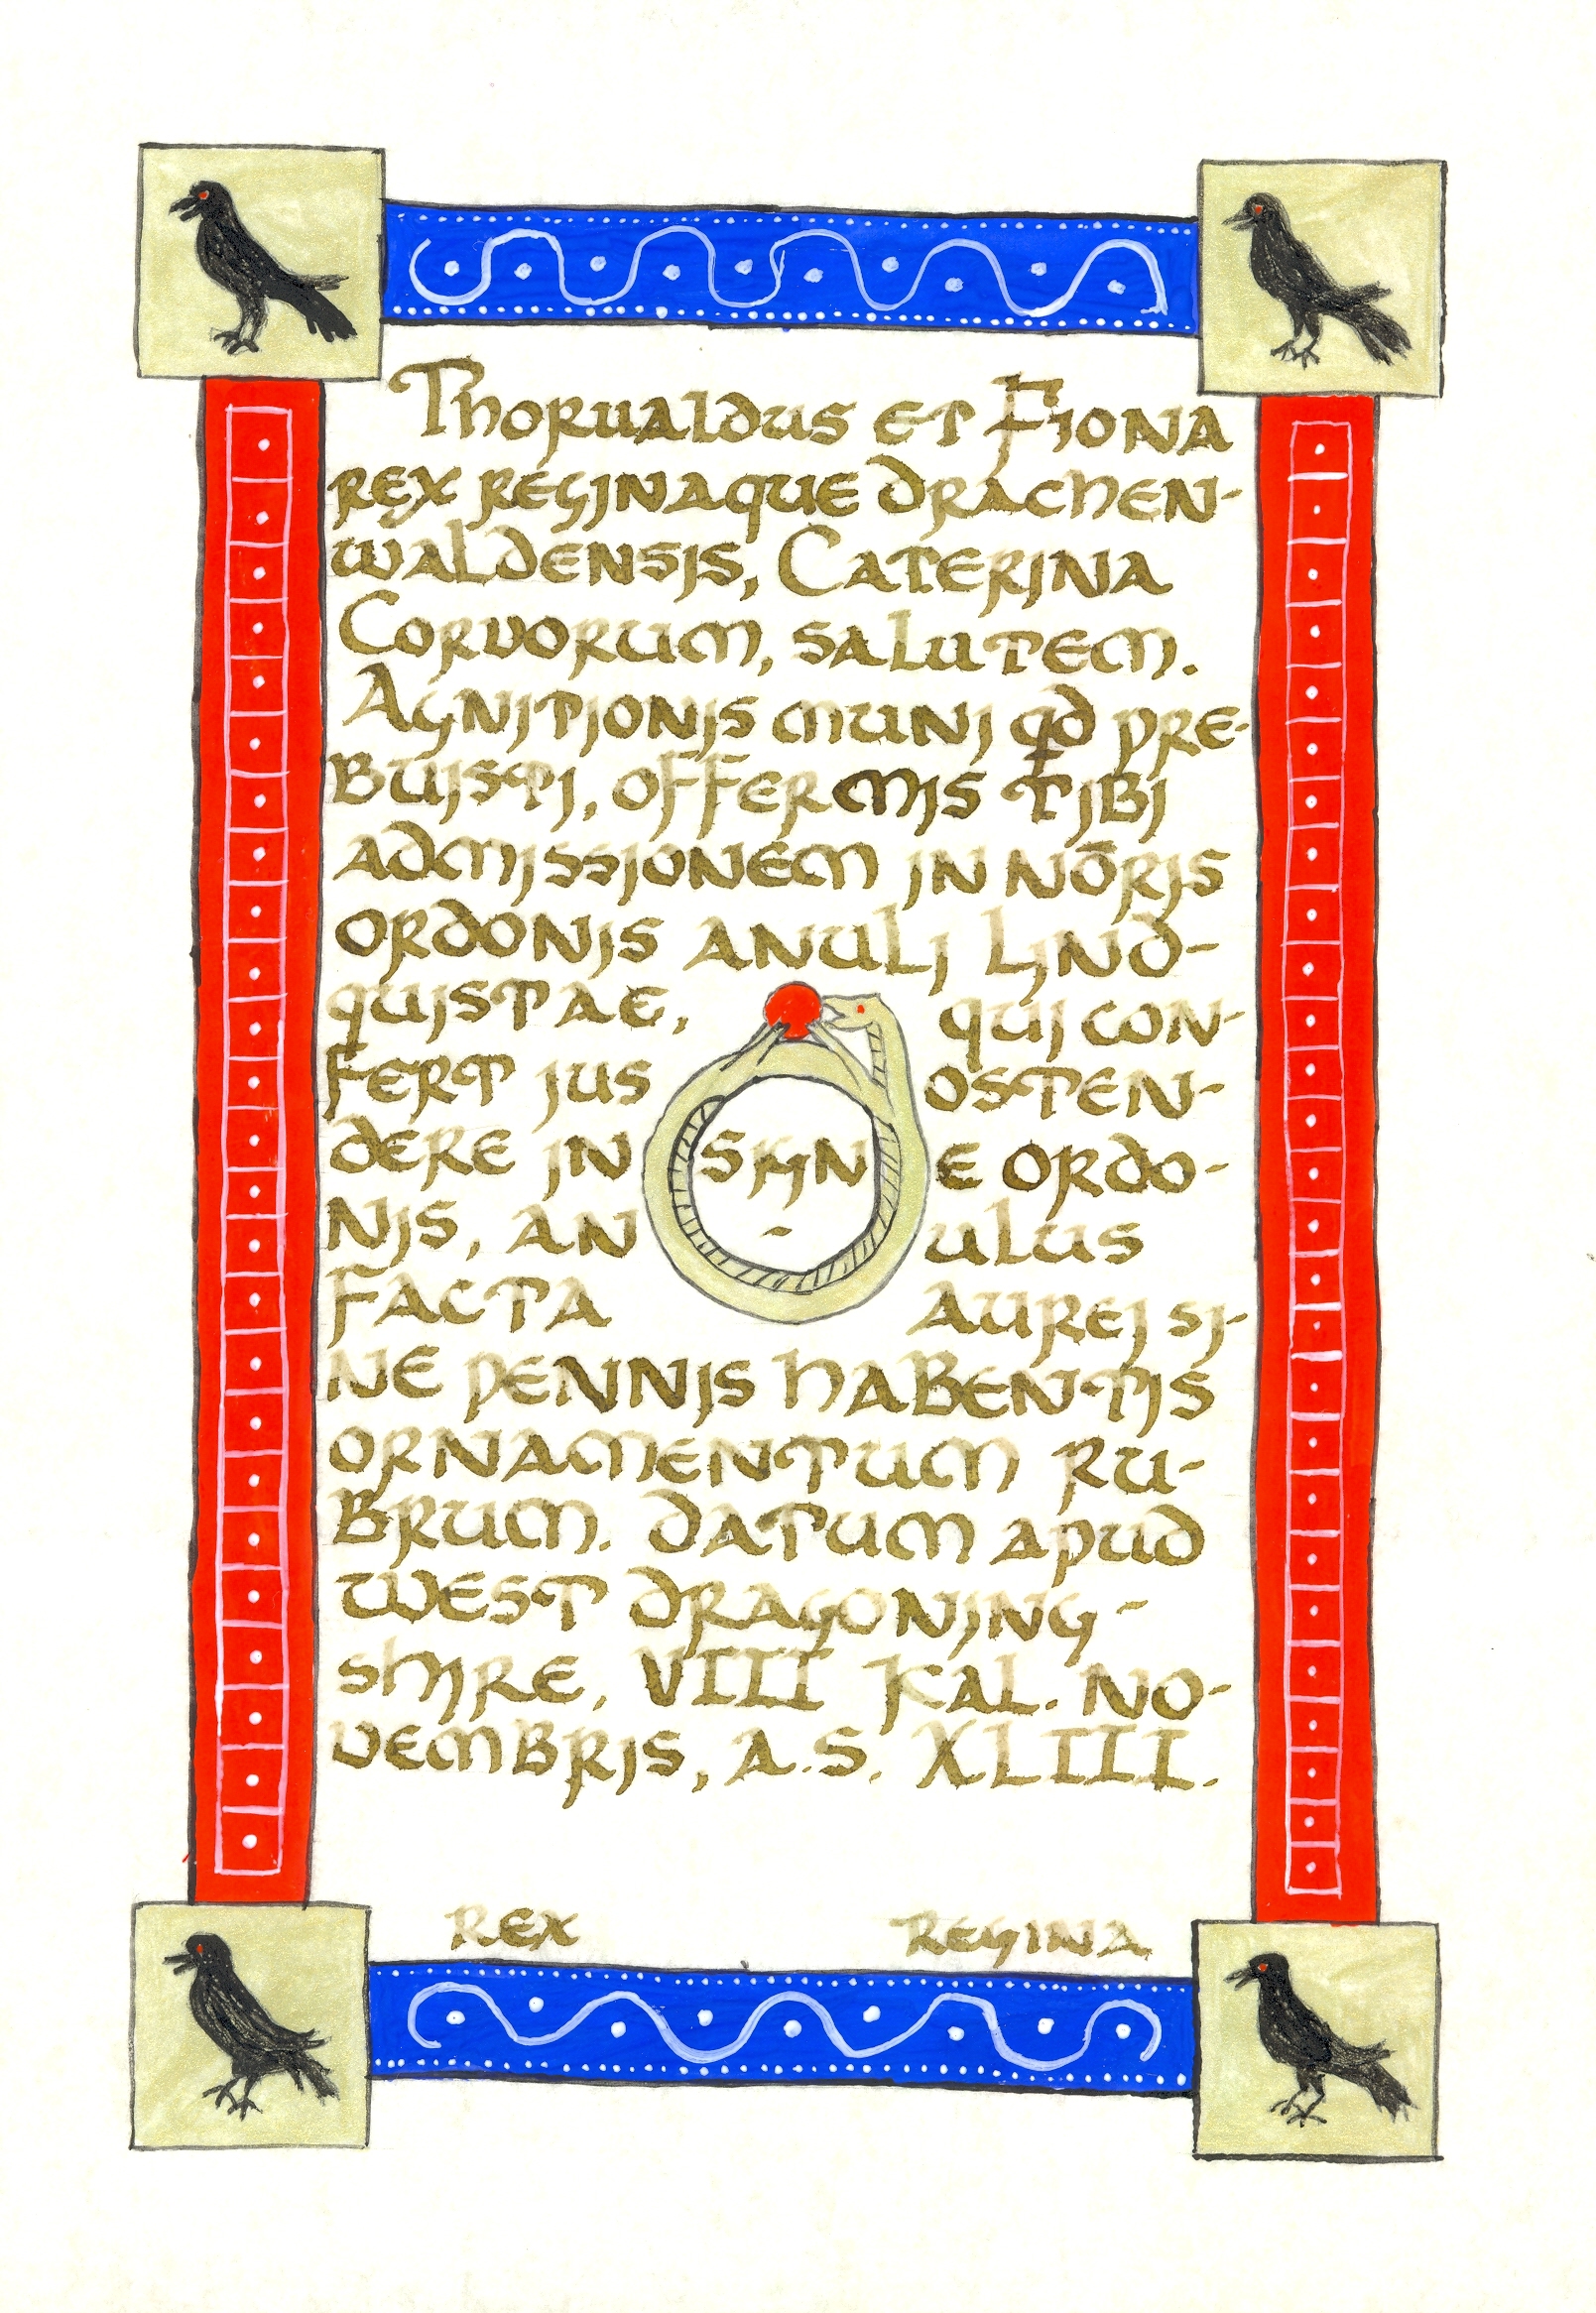 Thorvaldus et Fiona
rex reginaque drachen-
waldensis, Caterina
Corvorum, salutem.
Agnitionis muni qd pre-
buisti, offermis tibi
admissionem in nōris
ordonis anuli Lind-
quistae, qui con-
fert jus osten-
dere in signe ordo-
nis, an-ulus
facta aurei si-
ne pennis habentis
ornamentum ru-
brum. datum apud
west dragoning-
shire, VIII Kal. No-
vembris, A.S. XLIII.
Rex Regina